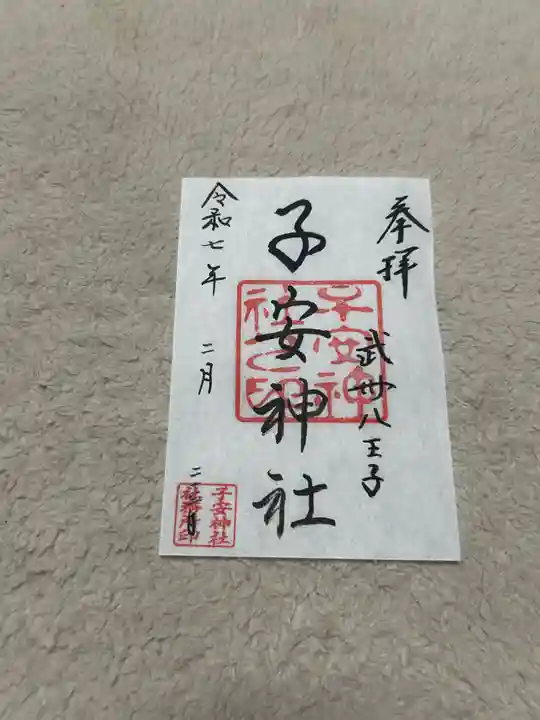 奉拝
武州八王子
子安神社
子安神社之印
令和七年
二月
子安神社
社務所印